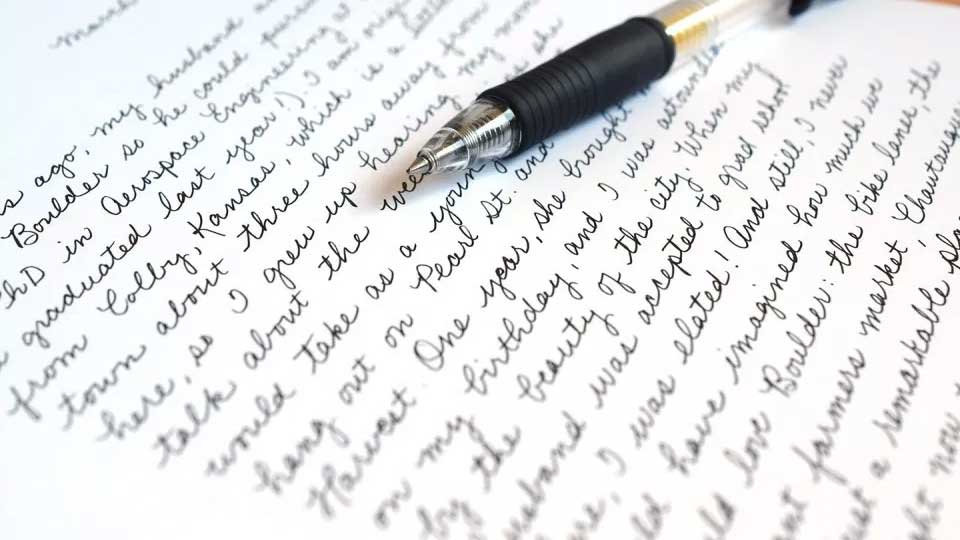 March
ago, my husband
Boulder so he could
PhD in Aerospace Engineering
graduated last year!). I am
from Colby, Kansas, which is a
town about three hours away from
here, so I grew up hearing my mom
talk about the she
would take as a young
hang out on Pearl St. and
Harvest One year, she brought
on my birthday, and I was
by the beauty of the city. When my
usband was accepted to grad school
I was elated! And still, I never
have imagined how much we
love Boulder: the bike lanes, the
farmers market, Chautauqua
a remarkable
now